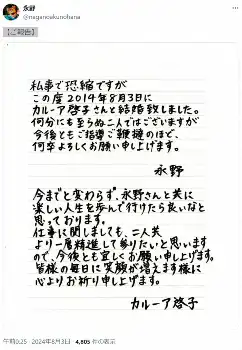 永野
@naganoekunohana
【ご報告】
私事で恐縮ですが
この度2014年8月3日に
カルーア啓子さんと結婚致しました。
何分にも至らぬ二人ではございますが
今後ともご指導ご鞭撻のほど、
何卒よろしくお願い申し上げます。
永野
今までと変わらず、永野さんと共に
楽しい人生を歩んで行けたら良いなと
思っております。
仕事に関しましても、二人共
より一層精進して参りたいと思います
ので、今後とも宜しくお願い申し上げます。
皆様の毎日に笑顔が増えます様に
心よりお祈り申し上げます。
カルーア啓子
午前0:25 · 2024年8月3日 · 4,805 件の表示